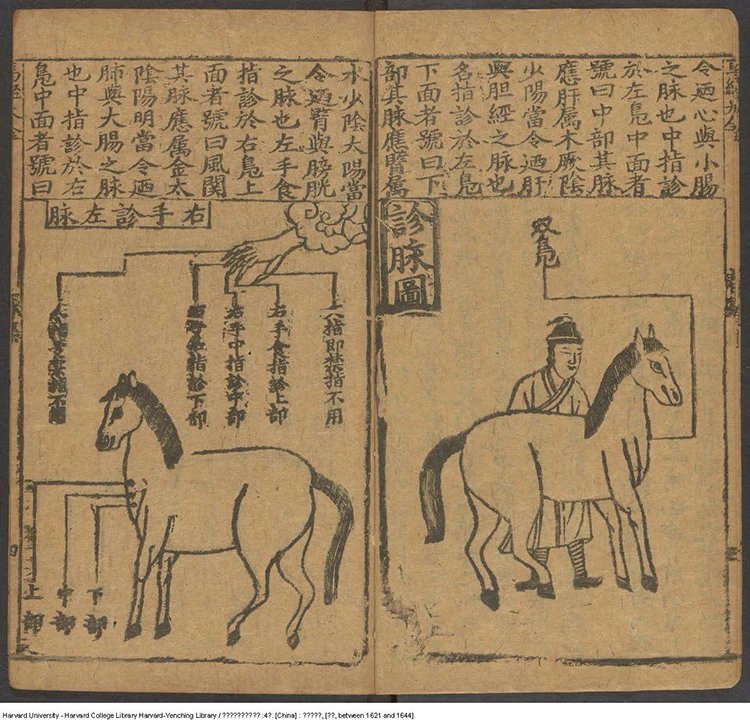 令廼心與小腸
之脉也中指診
於左鳬中面者
號曰中部其脉
應肝属木厥陰
少陽當令廼肝
與胆經之脉也
名指診於左鳬
下面者號曰下
部其脉應腎属
双鳬
診脉圖
水少陰太陽當
令廼腎與膀胱
之脉也左手食
指診於右鳬上
面者號曰風関
其脉應属金太
陰陽明當令廼
肺與大腸之脉
也中指診於左
鳬中面者號曰
右手診左脉
大指即禁指不用
右手食指診上部
右手中指診中部
指診下部
下部
中部
上部
Harvard University - Harvard College Library Harvard-Yenching Library / ?????????? :4?. [China] : ?????, [??, between 1621 and 1644].